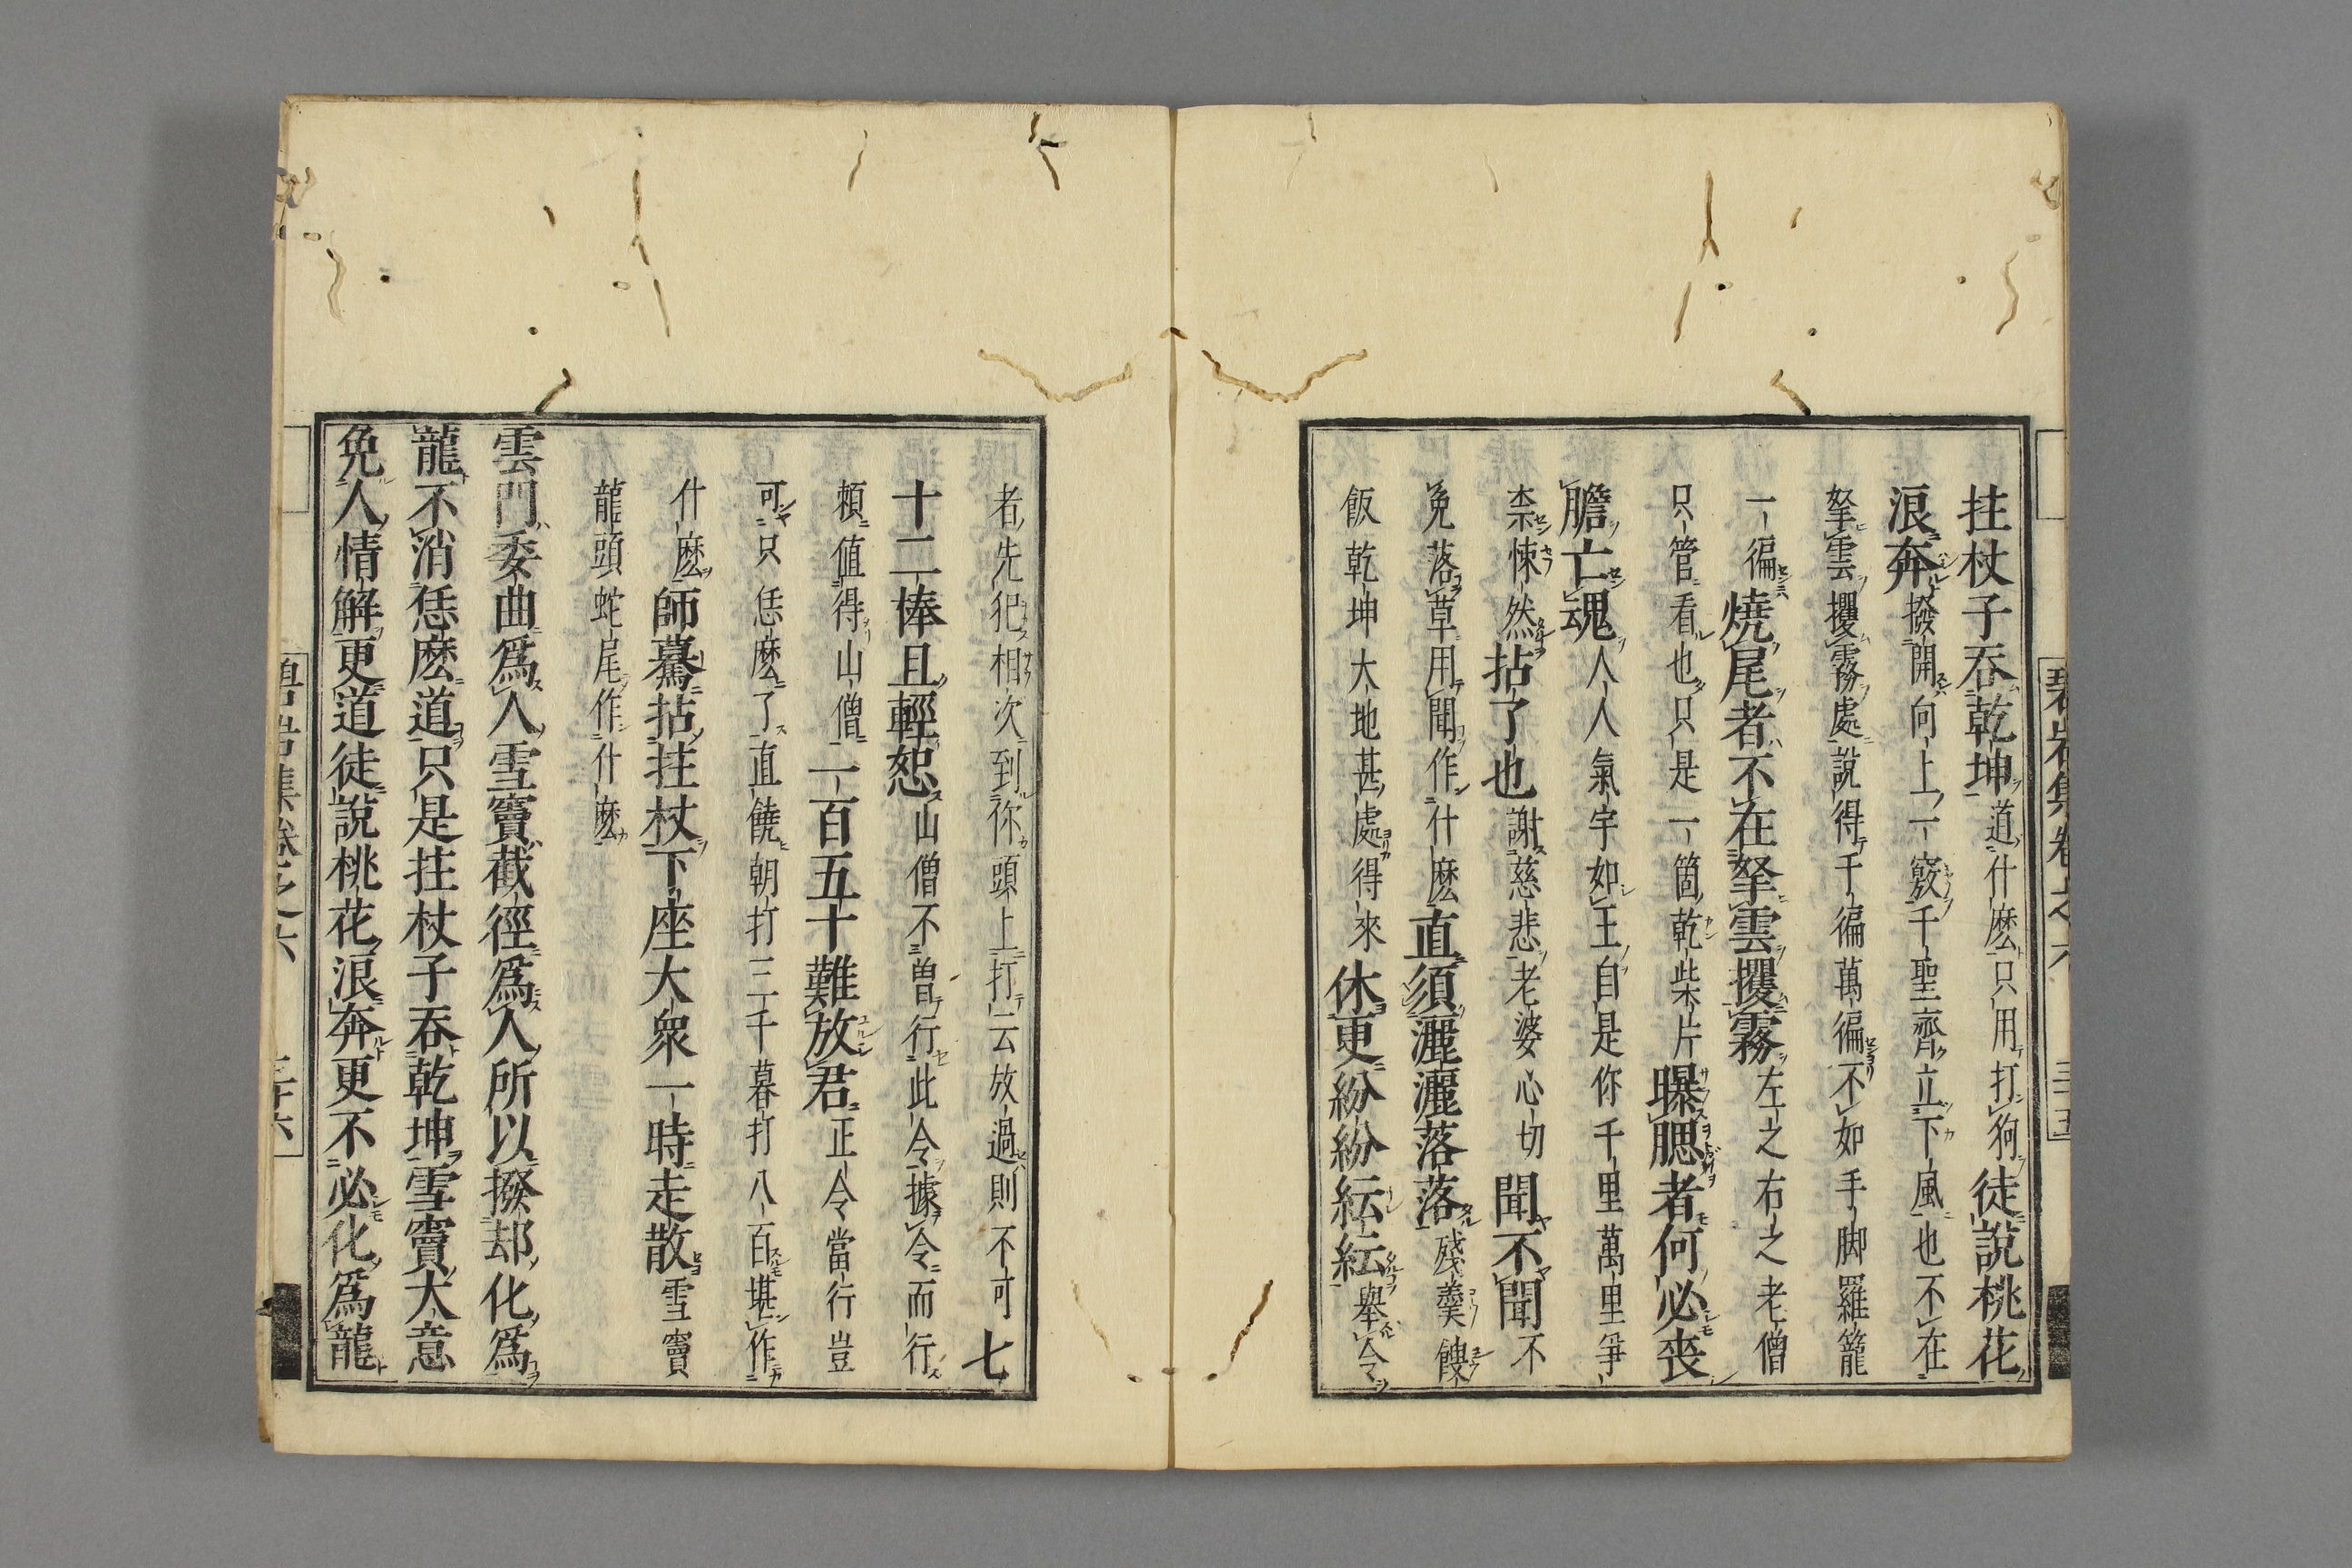 拄杖子吞乾坤道什麽只用打狗徒說桃花
浪奔撥開向上一竅千聖齊立下風也不在
拏雲攫霧處說得千徧萬徧不如手脚羅籠
一徧燒尾者不在拏雲攫霧左之右之老僧
只管看也只是一箇乾柴片曝腮者何必喪
膽亡魂人人氣宇如王自是你千里萬里爭
柰悚然拈了也謝慈悲老婆心切聞不聞不
免落草用聞作什麽直須灑灑落落殘羹餿
飯乾坤大地甚處得來休更紛紛紜紜舉令
碧岩集卷之六
三十五
者先犯相次到你頭上打云放過則不可七
十二棒且輕恕山僧不曾行此令據令而行
頼值得山僧一百五十難放君正令當行豈
可只恁麽了直饒朝打三千暮打八百堪作
什麽師驀拈拄杖下座大衆一時走散雪竇
龍頭蛇尾作什麽
雲門委曲爲人雪竇截徑爲人所以撥却化爲
龍不消恁麽道只是拄杖子吞乾坤雪竇大意
免人情解更道徒說桃花浪奔更不必化爲龍
碧岩集卷之六
三十六